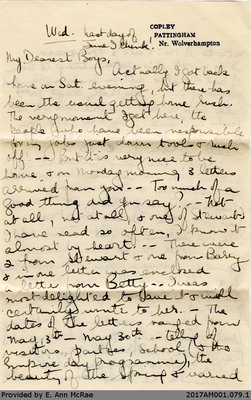 COPLEY
PATTINGHAM
Nr. Wolverhampton
Wed. last day of
June I think!
My Dearest Boys,
Actually I got back
here on Sat. evening, but there has
been the usual getting home rush.
The very moment I get here, the
people who have been responsible
for my jobs just down tools & rush
off. -- But it is very nice to be
home, & on Monday morning, 3 letters
arrived from you -- Too much of a
good thing did you say, - Not
at all, not at all, & one of Stewart's
I have read so often, I know it
almost by heart. -- There were
2 from Stewart & one from Barry
& in one letter was enclosed
a letter from Betty -- I was
most delighted to have it & will
certainly write to her. - The
dates of the letters ranged from
May 3rd - May 30th - telling of
visitors, parties, School, & the
Empire day programme, the
beauty of the Spring & varied
Provided by E. Ann McRae
2017AM001.079.1